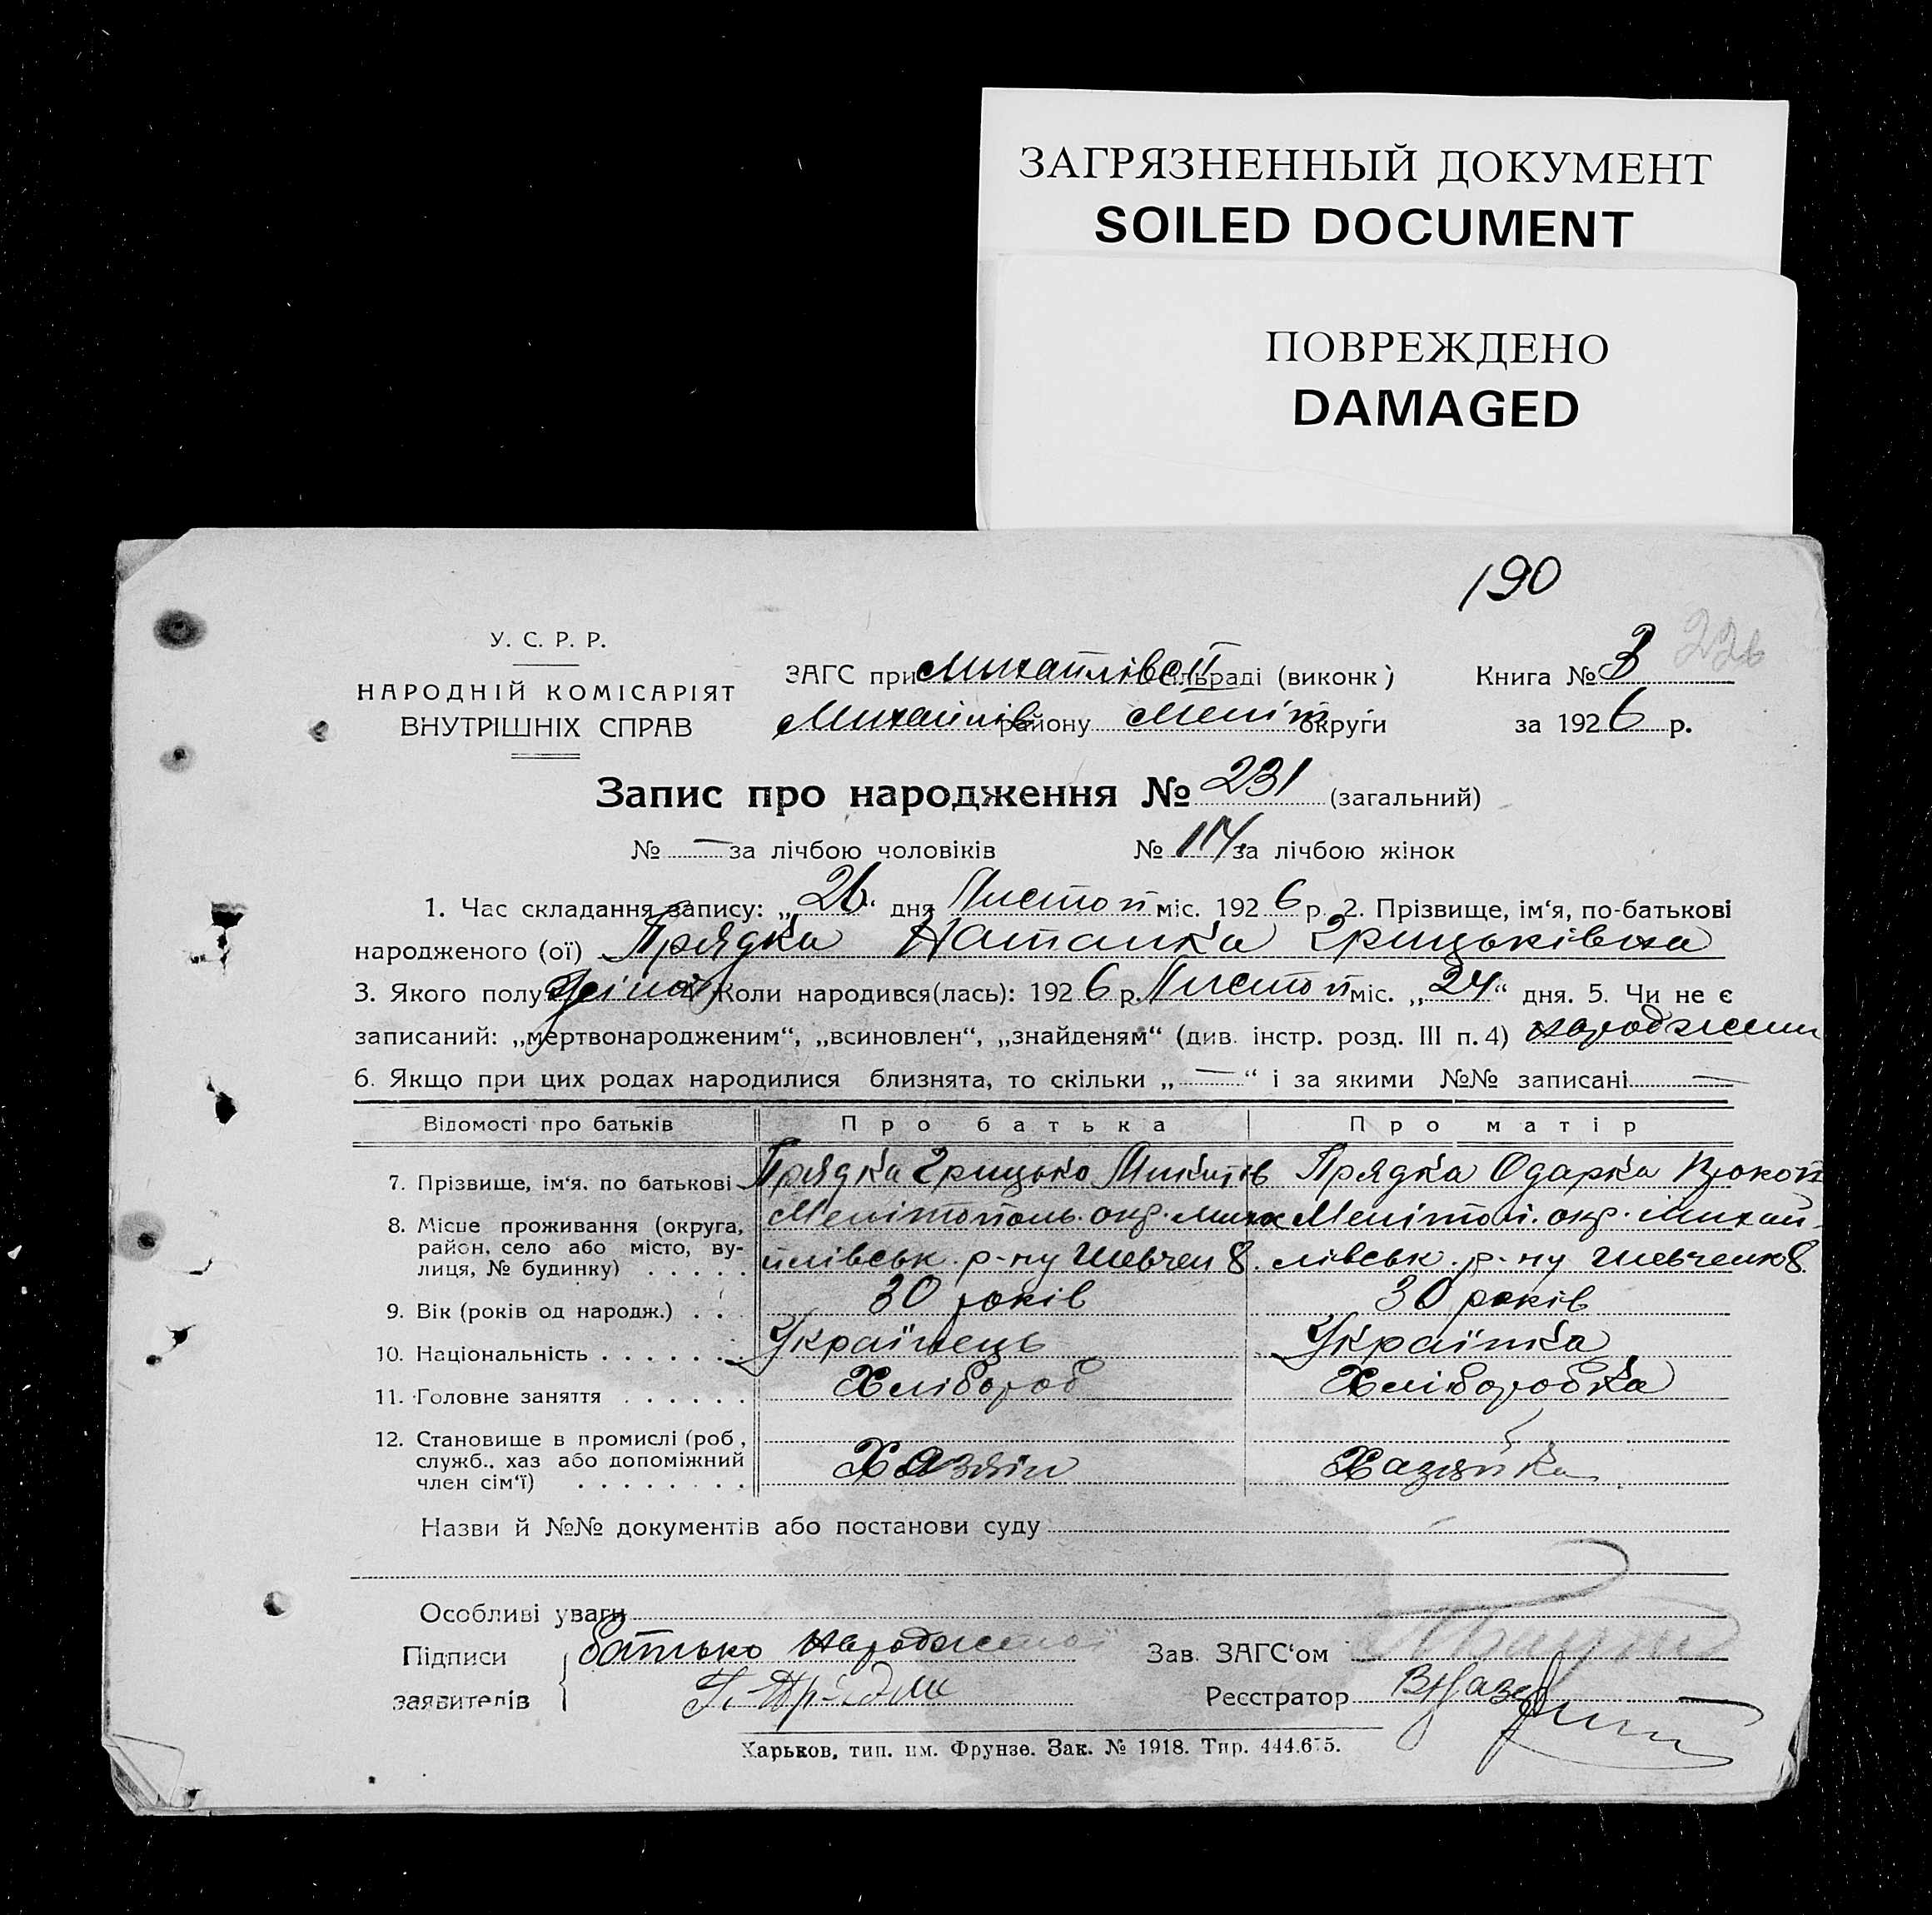 ЗАГРЯЗНЕННЫЙ ДОКУМЕНТ
SOILED DOCUMENT
ПОВРЕЖДЕНО
DAMAGED
190
У. С. Р. Р.
НАРОДНІЙ КОМІСАРІЯТ
ВНУТРІШНІХ СПРАВ
ЗАГС при Михайлівсп сільраді (виконк)
Михайлів району Меліт округи
Книга № 3 226
за 1926 р.
Запис про народження № 231 (загальний)
№ — за лічбою чоловіків № 114 за лічбою жінок
1. Час складання запису: „26“ дня Листоп міс. 1926 р. 2. Прізвище, ім‘я, по-батькові
народженого (ої) Прядка Наталка Грицьківна
3. Якого полу 4. Коли народився(лась): 1926 р. Листоп міс. „24“ дня. 5. Чи не є
записаний: „мертвонародженим“, „всиновлен“, „знайденям“ (див. інстр. розд. III п. 4) народжении
6. Якщо при цих родах народилися близнята, то скільки „—“ і за якими №№ записані —
Відомості про батьків Про батька Про матір
7. Прізвище, ім‘я. по батькові Прядка Грицько Микитів Прядка Одарка Прокоп
8. Місце проживання (округа, район, село або місто, вулиця, № будинку) . . . . .
Мелітополь. окр. Миха Меліпол. окр. Михай-
йлівськ. р-ну Шевчен 8. лівськ. р-ну Шевченк 8.
9. Вік (років од народж.) . . . 30 років 30 років
10. Національність . . . . . . . Українець Українка
11. Головне заняття . . . . . . Хлібороб Хліборобка
12. Становище в промислі (роб., служб., хаз або допоміжний член сім‘ї) . . . . . . . . Хазяін Хазяйка
Назви й №№ документів або постанови суду —
Особливі уваги
Підписи заявителів { батько народженої
Г. Прядка
Зав. ЗАГС‘ом
Реєстратор
Харьков, тип. им. Фрунзе. Зак. № 1918. Тир. 444.675.